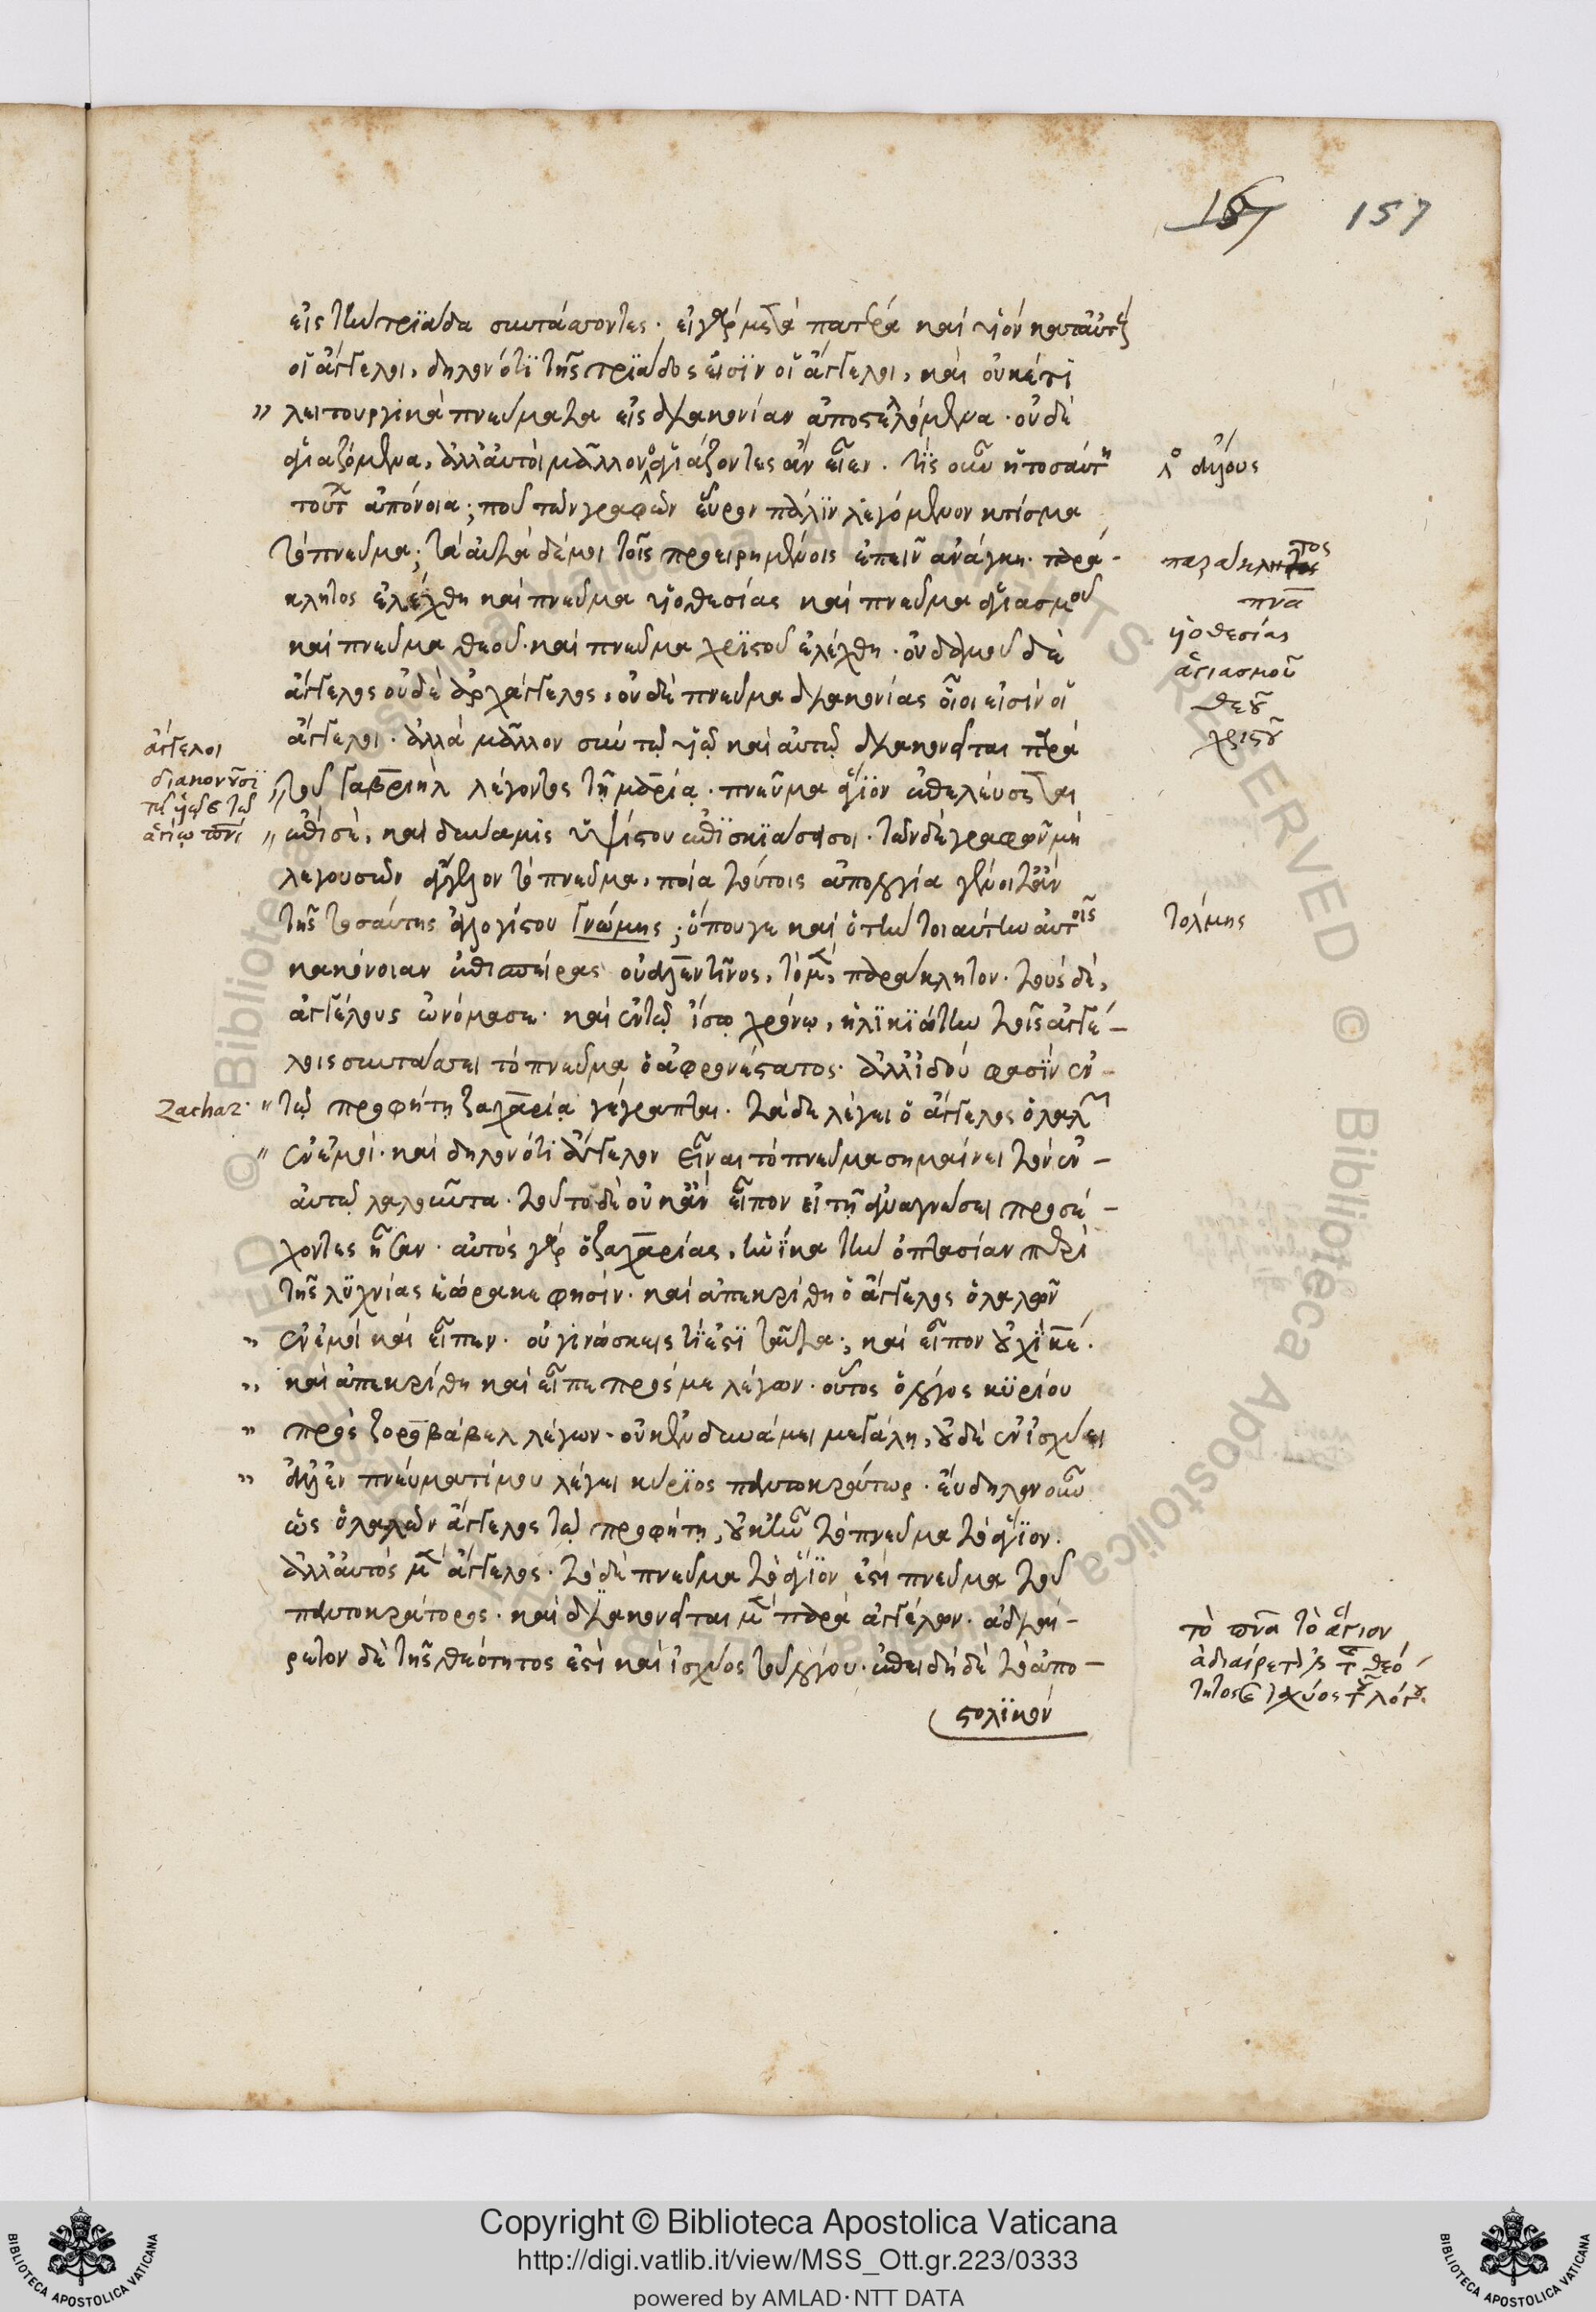 157
157
εἰς τὴν τριάδα συντάσσοντες. εἰ γὰρ μετὰ πατέρα καὶ υἱὸν κατ' αὐτοὺς
οἱ ἄγγελοι, δηλονότι τῆς τριάδος εἰσὶν οἱ ἄγγελοι, καὶ οὐκέτι
" λειτουργικὰ πνεύματα εἰς διακονίαν ἀποστελλόμενα. οὐδὲ
ἁγιαζόμενα, ἀλλ' αὐτοὶ μᾶλλον ἁγιάζοντες ἂν εἶεν. τίς οὖν ἡ τοσαύτη
λ ἄλλους
τούτων ἀπόνοια; ποῦ τῶν γραφῶν εὗρον πάλιν λεγόμενον κτίσμα
τὸ πνεῦμα; τὰ αὐτὰ δέ μοι τοῖς προειρημένοις εἰπεῖν ἀνάγκη. παρά-
παράκλητος
κλητος ἐλέχθη καὶ πνεῦμα υἱοθεσίας καὶ πνεῦμα ἁγιασμοῦ
πνα
καὶ πνεῦμα θεοῦ. καὶ πνεῦμα χριστοῦ ἐλέχθη. οὐδαμοῦ δὲ
υἱοθεσίας
ἁγιασμοῦ
ἄγγελος οὐδὲ ἀρχάγγελος, οὐδὲ πνεῦμα διακονίας οἷοι εἰσὶν οἱ
θεοῦ
χριστοῦ
ἄγγελοι. ἀλλὰ μᾶλλον σὺν τῷ υἱῷ καὶ αὐτῷ διακονεῖται παρὰ
ἄγγελοι
διακονοῦσι
τῷ υἱῷ σὺν τῷ
ἁγίῳ πνι
" τοῦ Γαβριὴλ λέγοντος τῇ μαρίᾳ. πνεῦμα ἅγιον ἐπελεύσεται
" ἐπὶ σὲ, καὶ δύναμις ὑψίστου ἐπισκιάσει σοι. τῶν δὲ γραφῶν μὴ
λεγουσῶν ἄγγελον τὸ πνεῦμα, ποία τούτοις ἀπολογία γένοιτ' ἂν
τῆς τοσαύτης ἀλογίστου γνώμης; ὅπου γε καὶ ὁ τὴν τοιαύτην αὐτοῖς
τόλμης
κακόνοιαν ἐπισπείρας οὐαλεντῖνος, τὸ μὲν, παράκλητον. τοὺς δὲ,
ἀγγέλους ὠνόμασεν. καὶ ἐν τῷ ἴσῳ χρόνῳ, ἡλικιώτην τοῖς ἀγγέ-
λοις συντάσσει τὸ πνεῦμα ὁ ἀφρονέστατος. ἀλλ' ἰδοὺ φασὶν ἐν
Zachar. " τῷ προφήτῃ ζαχαρίᾳ γέγραπται. τάδε λέγει ὁ ἄγγελος ὁ λαλῶν
" ἐν ἐμοί. καὶ δηλονότι ἄγγελον εἶναι τὸ πνεῦμα σημαίνει τὸν ἐν
αὐτῷ λαλοῦντα. τοῦτο δὲ οὐκ ἂν εἶπον εἰ τῇ ἀναγνώσει προσέ-
χοντες ἦσαν. αὐτὸς γὰρ ὁ ζαχαρίας, ἡνίκα τὴν ὀπτασίαν περὶ
τῆς λυχνίας ἑώρακε φησίν. καὶ ἀπεκρίθη ὁ ἄγγελος ὁ λαλῶν
" ἐν ἐμοὶ καὶ εἶπεν. οὐ γινώσκεις τί ἐστι ταῦτα; καὶ εἶπον οὐχὶ κε.
" καὶ ἀπεκρίθη καὶ εἶπε πρός με λέγων. οὗτος ὁ λόγος κυρίου
" πρὸς ζοροβάβελ λέγων. οὐκ ἐν δυνάμει μεγάλη, οὐδὲ ἐν ἰσχύει
" ἀλλ' ἐν πνεύματί μου λέγει κύριος παντοκράτωρ. εὔδηλον οὖν
ὡς ὁ λαλῶν ἄγγελος τῷ προφήτῃ, οὐκ ἦν τὸ πνεῦμα τὸ ἅγιον.
ἀλλ' αὐτὸς μὲν ἄγγελος. τὸ δὲ πνεῦμα τὸ ἅγιον ἐστὶ πνεῦμα τοῦ
παντοκράτορος. καὶ διακονεῖται μὲν παρὰ ἀγγέλων. ἀδιαί-
τὸ πνα τὸ ἅγιον
ρετον δὲ τῆς θεότητος ἐστὶ καὶ ἰσχύος τοῦ λόγου. ἐπειδὴ δὲ τὸ ἀπο-
ἀδιαίρετόν ἐστι τῆς θεό-
τητος καὶ ἰσχύος τοῦ λόγου.
στολικὸν
Copyright © Biblioteca Apostolica Vaticana
http://digi.vatlib.it/view/MSS_Ott.gr.223/0333
powered by AMLAD·NTT DATA
BIBLIOTECA APOSTOLICA VATICANA
BIBLIOTECA APOSTOLICA VATICANA